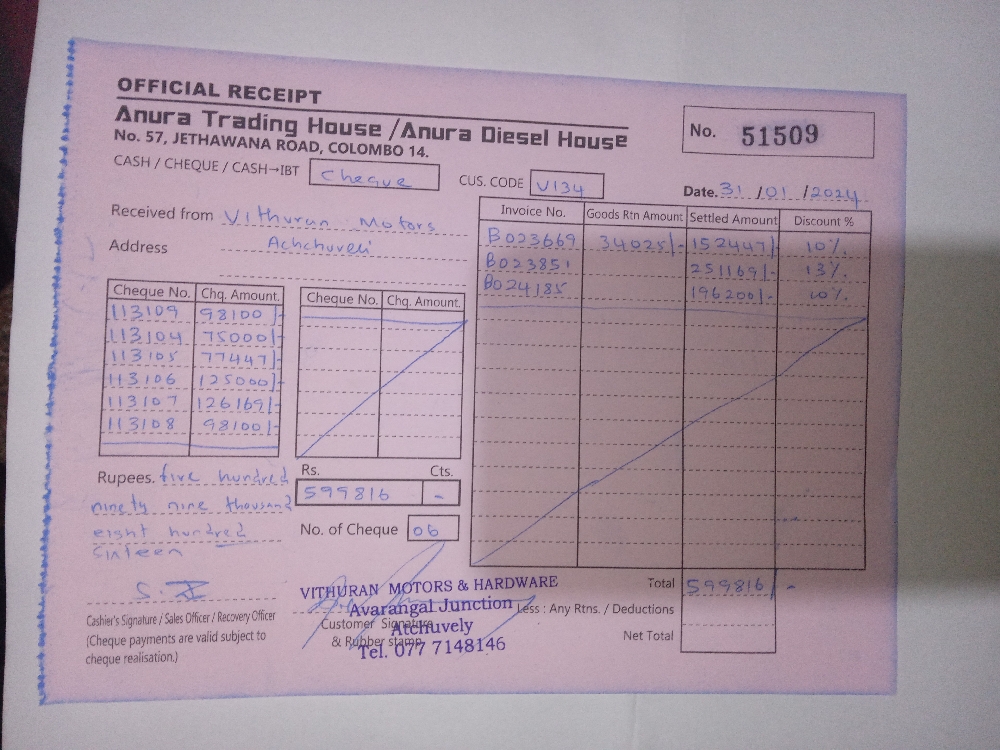 OFFICIAL RECEIPT
Anura Trading House /Anura Diesel House
No. 57, JETHAWANA ROAD, COLOMBO 14.
No. 51509
CASH / CHEQUE / CASH→IBT Cheque
CUS. CODE V134
Date. 31 /01 /2024
Received from Vithuran Motors
Address Achchuveli
Invoice No. Goods Rtn Amount Settled Amount Discount %
B023669 34025/- 152447/- 10%.
B023851 251169/- 13%.
B024185 196200/- 10%.
Cheque No. Chq. Amount.
113109 98100/-
113104 75000/-
113105 77447/-
113106 125000/-
113107 126169/-
113108 98100/-
Cheque No. Chq. Amount.
Rupees. five hundred
ninety nine thousand
eight hundred
Sixteen
Rs. Cts.
599816 -
No. of Cheque 06
Total 599816/-
Less : Any Rtns. / Deductions
Net Total
Cashier's Signature / Sales Officer / Recovery Officer
(Cheque payments are valid subject to
cheque realisation.)
VITHURAN MOTORS & HARDWARE
Avarangal Junction
Atchuvely
Tel. 077 7148146
Customer Signature
& Rubber stamp